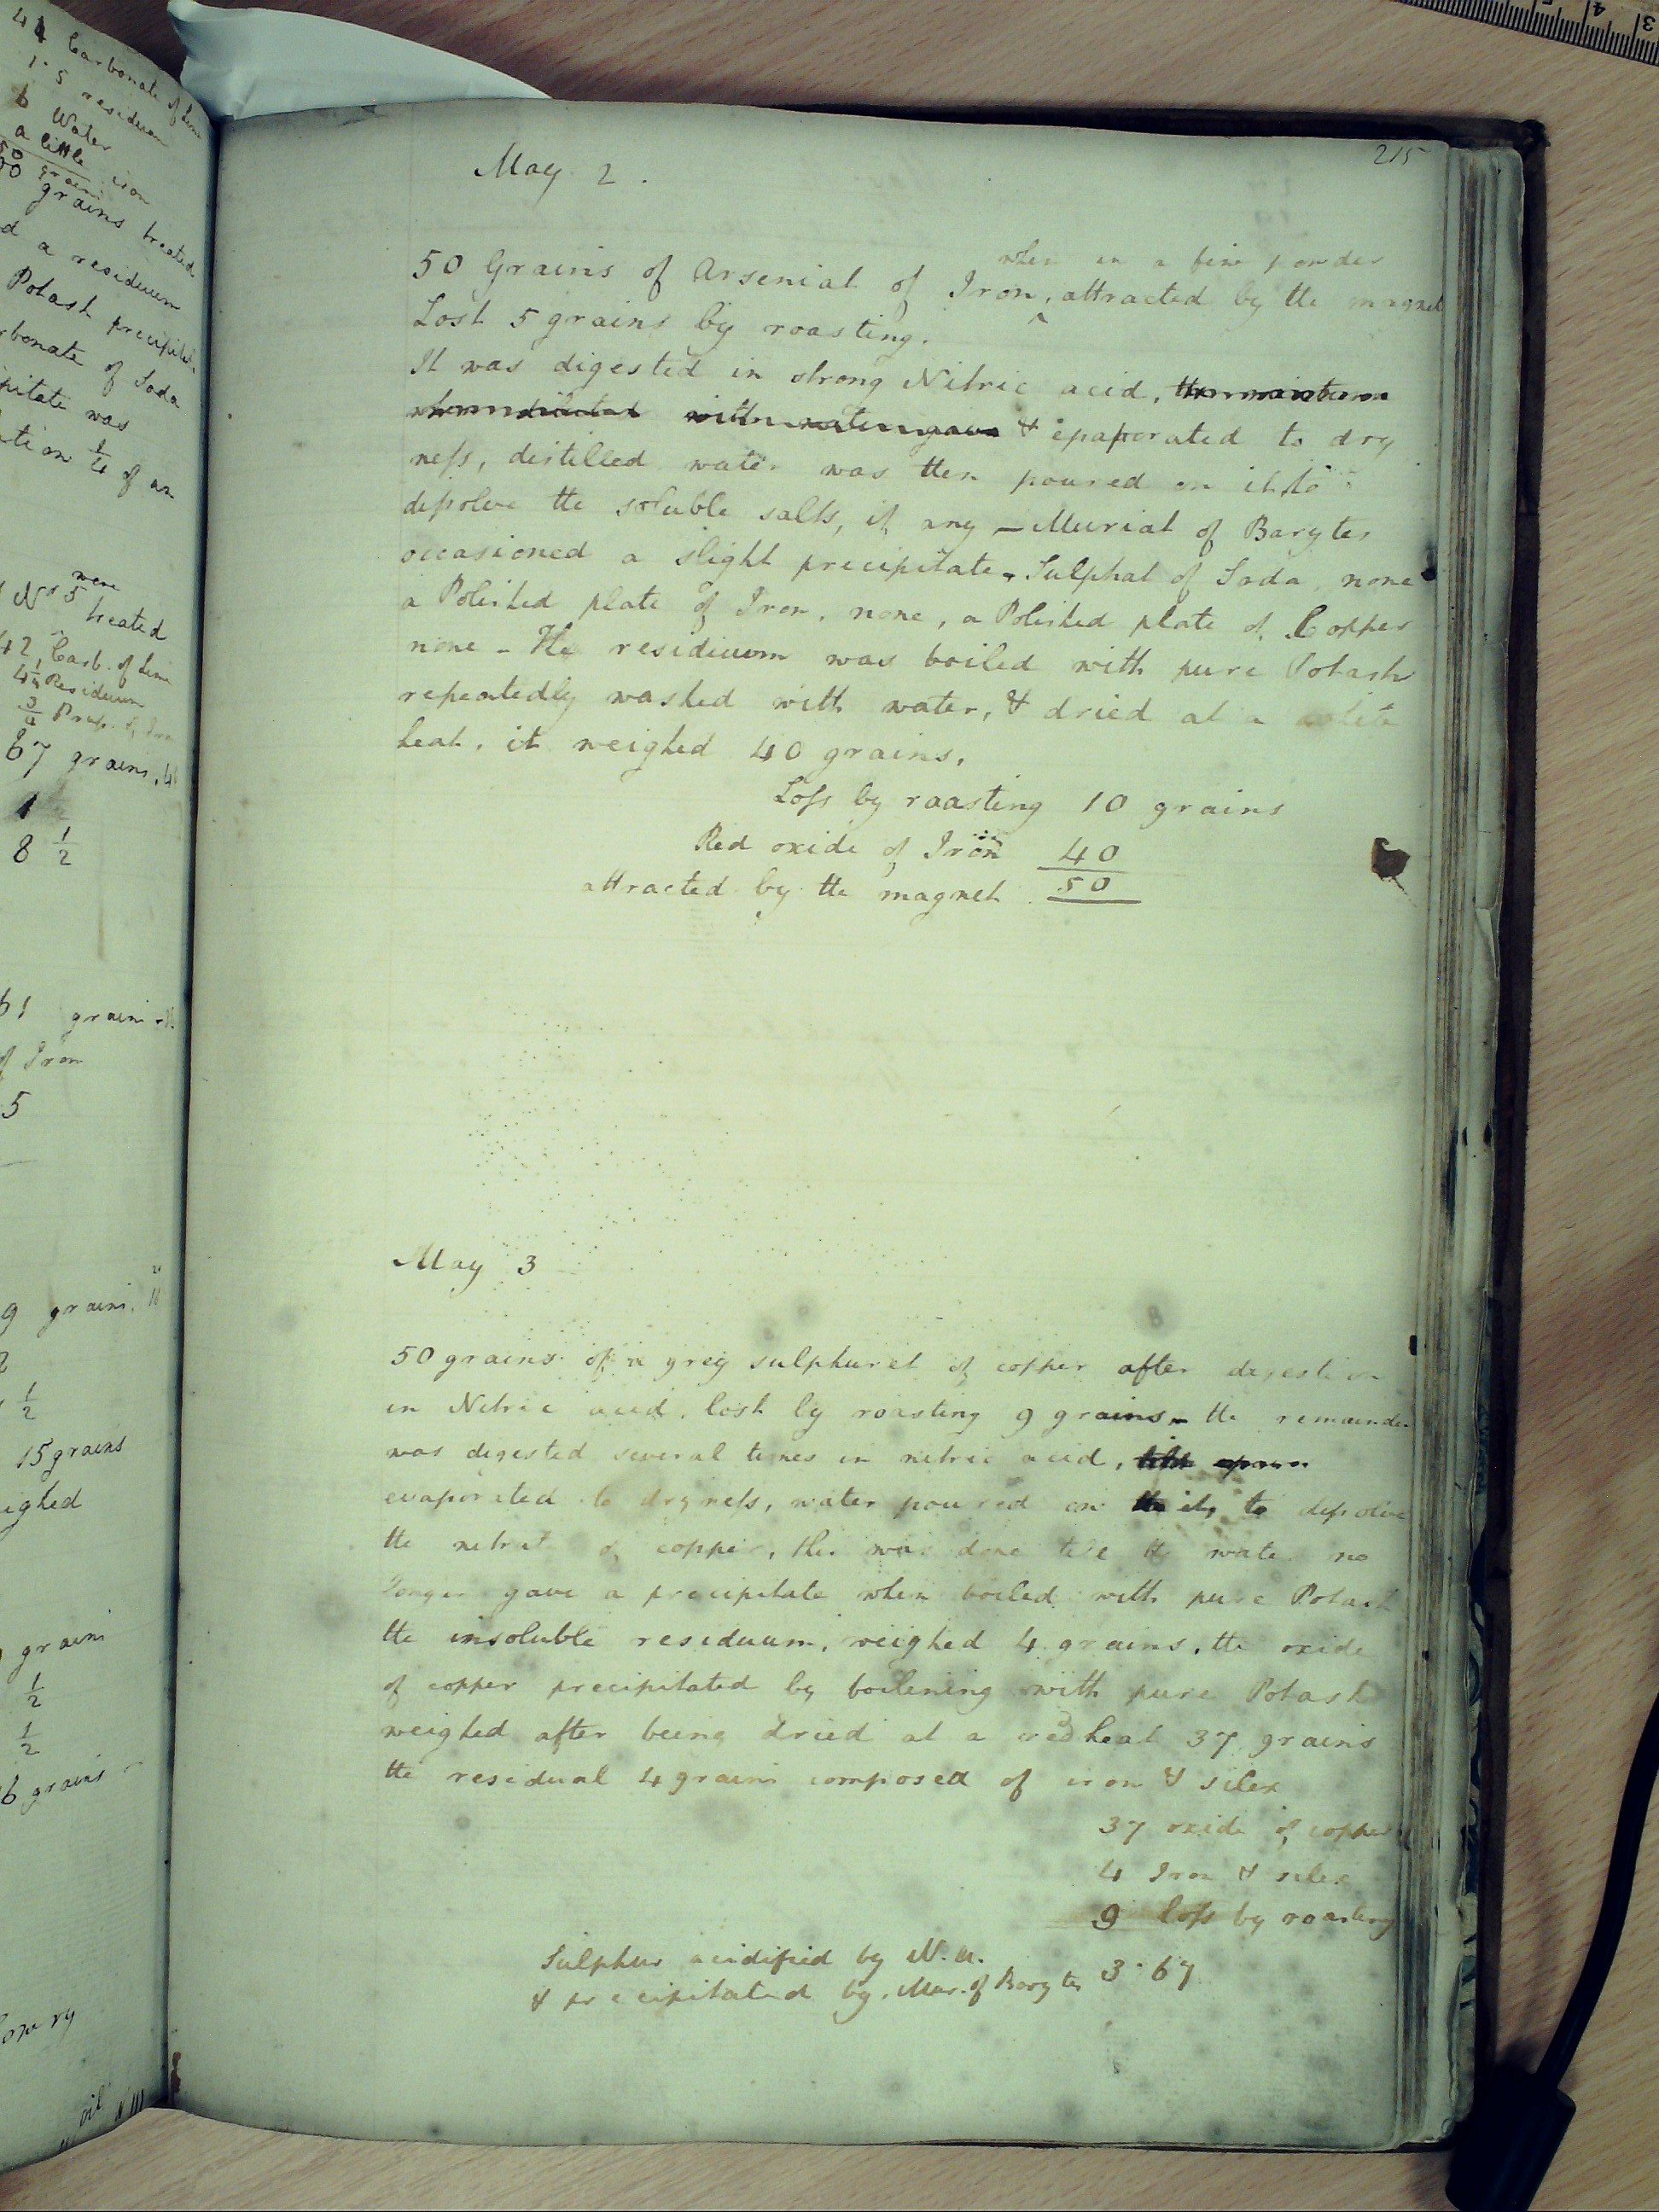 44 Carbonate of Lime
1.5 residuum
6 Water
a little iron
50 grains
grains treated
d a residuum
Potash precipitat
rbonate of Soda
pitate was
ation 1/4 of an
Nos 5 were
treated
42, Carb. of Lime
4 1/4 Residuum
3/4
67 grains,
1
8 1/2
61 grains
of Iron
5
9 grains.
1/2
15 grains
eighed
grains
1/2
1/2
6 grains
oil
215
May 2.
when in a fine powder
50 Grains of Arseniat of Iron, ^ attracted by the magnet
Lost 5 grains by roasting.
It was digested in strong Nitric acid,
& epaporated to dry
neſs, distilled water was then poured on it, to
diſsolve the soluble salts, if any – Muriat of Barytes
occasioned a slight precipitate, Sulphat of Soda, none
a Polished plate of Iron, none, a Polished plate of Copper
none – The residuum was boiled with pure Potash
repeatedly washed with water, & dried at a
heat, it weighed 40 grains.
Loſs by roasting 10 grains
Red oxide of Iron 40
attracted by the magnet 50
May 3
50 grains of a grey sulphuret of copper after digestion
in Nitric acid, lost by roasting 9 grains – the remainder
was digested several times in nitric acid,
evaporated to dryneſs, water poured on it, to diſsolve
the nitrat of copper, this was done till the water no
longer gave a precipitate when boiled with pure Potash
the insoluble residuum, weighed 4 grains, the oxide
of copper precipitated by boilening with pure Potash
weighed after being dried at a red heat 37 grains
the residual 4 grains composed of iron & silex
37 oxide of copper
4 Iron & silex
9 loſs by roasting
Sulphur acidified by N.a.
& precipitated by. Mur. of Barytes 3.67